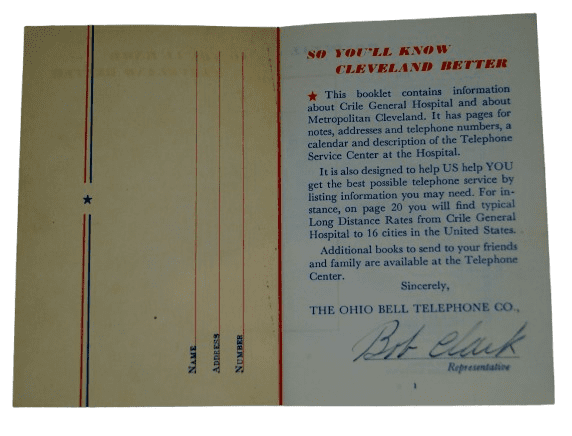 NAME
ADDRESS
NUMBER
SO YOU'LL KNOW
CLEVELAND BETTER
★ This booklet contains information
about Crile General Hospital and about
Metropolitan Cleveland. It has pages for
notes, addresses and telephone numbers, a
calendar and description of the Telephone
Service Center at the Hospital.
It is also designed to help US help YOU
get the best possible telephone service by
listing information you may need. For in-
stance, on page 20 you will find typical
Long Distance Rates from Crile General
Hospital to 16 cities in the United States.
Additional books to send to your friends
and family are available at the Telephone
Center.
Sincerely,
THE OHIO BELL TELEPHONE CO.,
Bob Clark
Representative
1